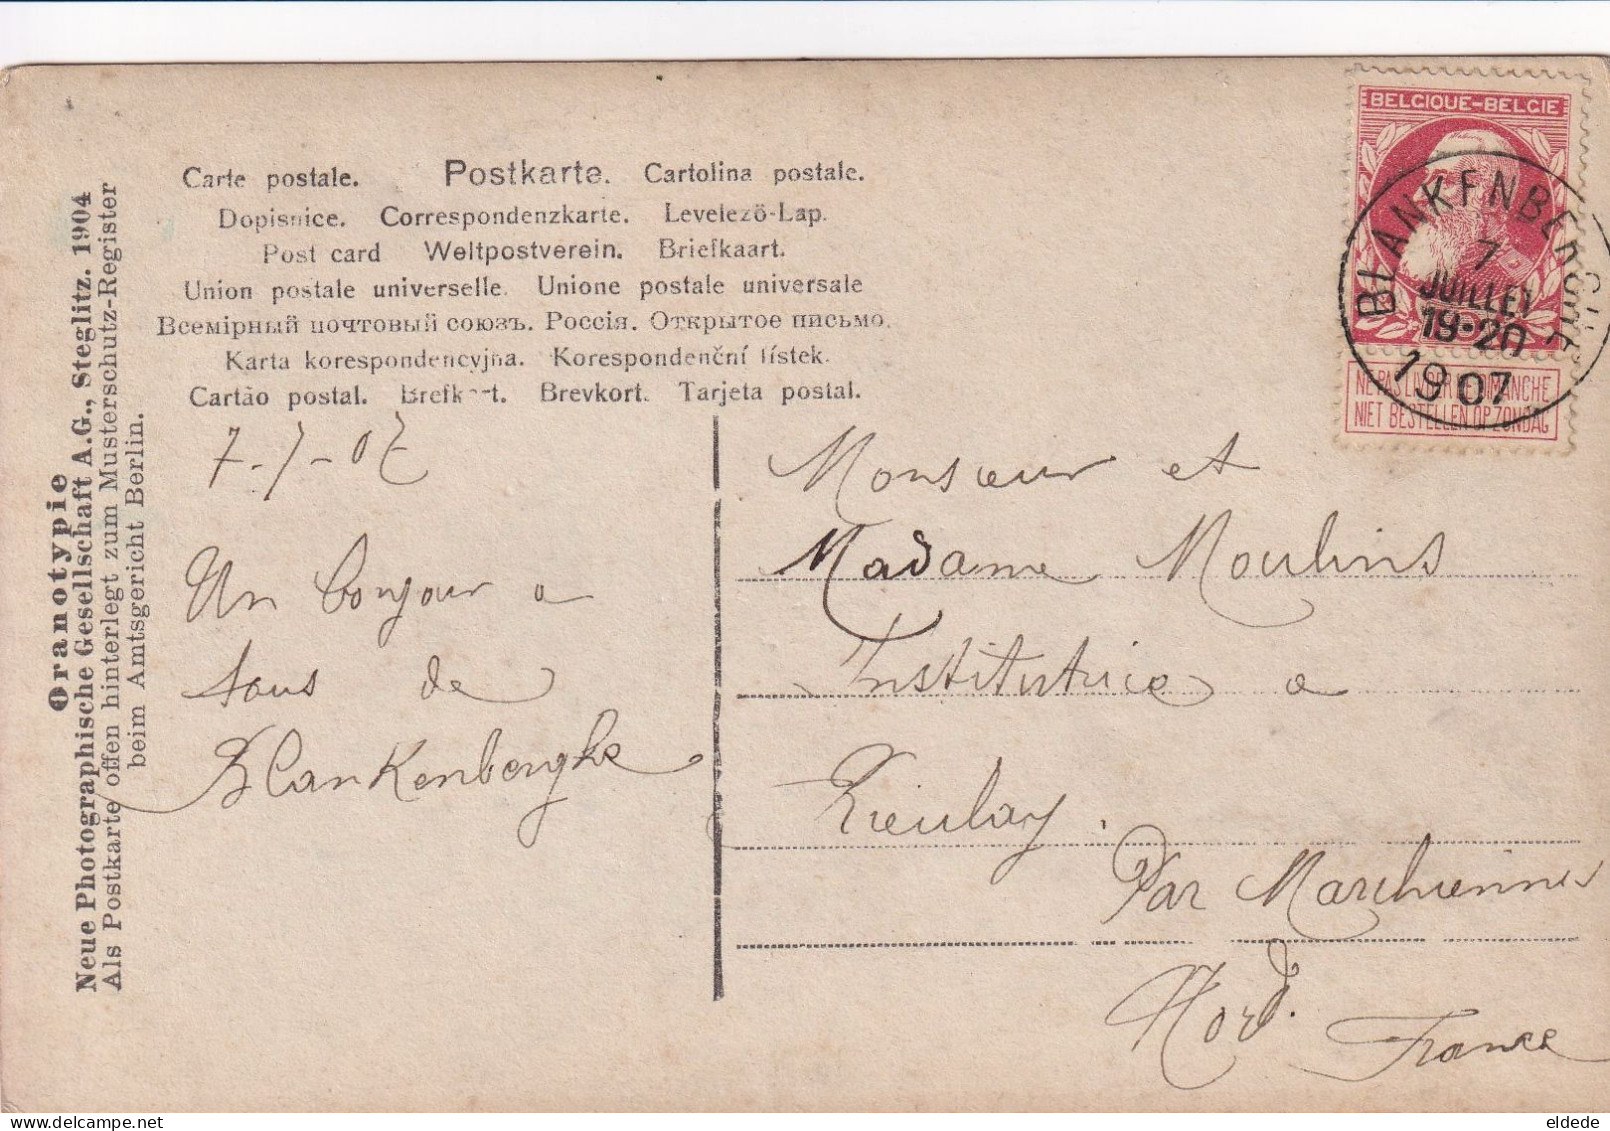 Carte postale. Postkarte. Cartolina postale.
Dopisnice. Correspondenzkarte. Levelezö-Lap.
Post card Weltpostverein. Briefkaart.
Union postale universelle. Unione postale universale
Всемірный почтовый союзъ. Россія. Открытое письмо.
Karta korespondencyjna. Korespondenční lístek.
Cartão postal. Brefkort. Brevkort. Tarjeta postal.
Oranotypie
Neue Photographische Gesellschaft A.G., Steglitz. 1904
Als Postkarte offen hinterlegt zum Musterschutz-Register
beim Amtsgericht Berlin.
BELGIQUE-BELGIE
BLANKENBERGHE
7
JUILLET
19-20
1907
NE PAS LIVRER LE DIMANCHE
NIET BESTELLEN OP ZONDAG
7-7-07
Un bonjour a
tous de
Blankenberghe
Monsieur et
Madame Moulins
Institutrice a
Tieulay.
Par Marchiennes
Nord.
France
eldede